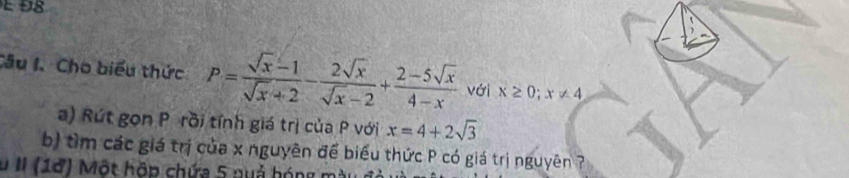 Đ8
Câu I. Cho biểu thức P = \frac{\sqrt{x}-1}{\sqrt{x}+2} - \frac{2\sqrt{x}}{\sqrt{x}-2} + \frac{2-5\sqrt{x}}{4-x} với x ≥ 0; x ≠ 4
a) Rút gọn P rồi tính giá trị của P với x = 4 + 2\sqrt{3}
b) tìm các giá trị của x nguyên để biểu thức P có giá trị nguyên ?
II (1đ) Một hộp chứa 5 quả bóng màu